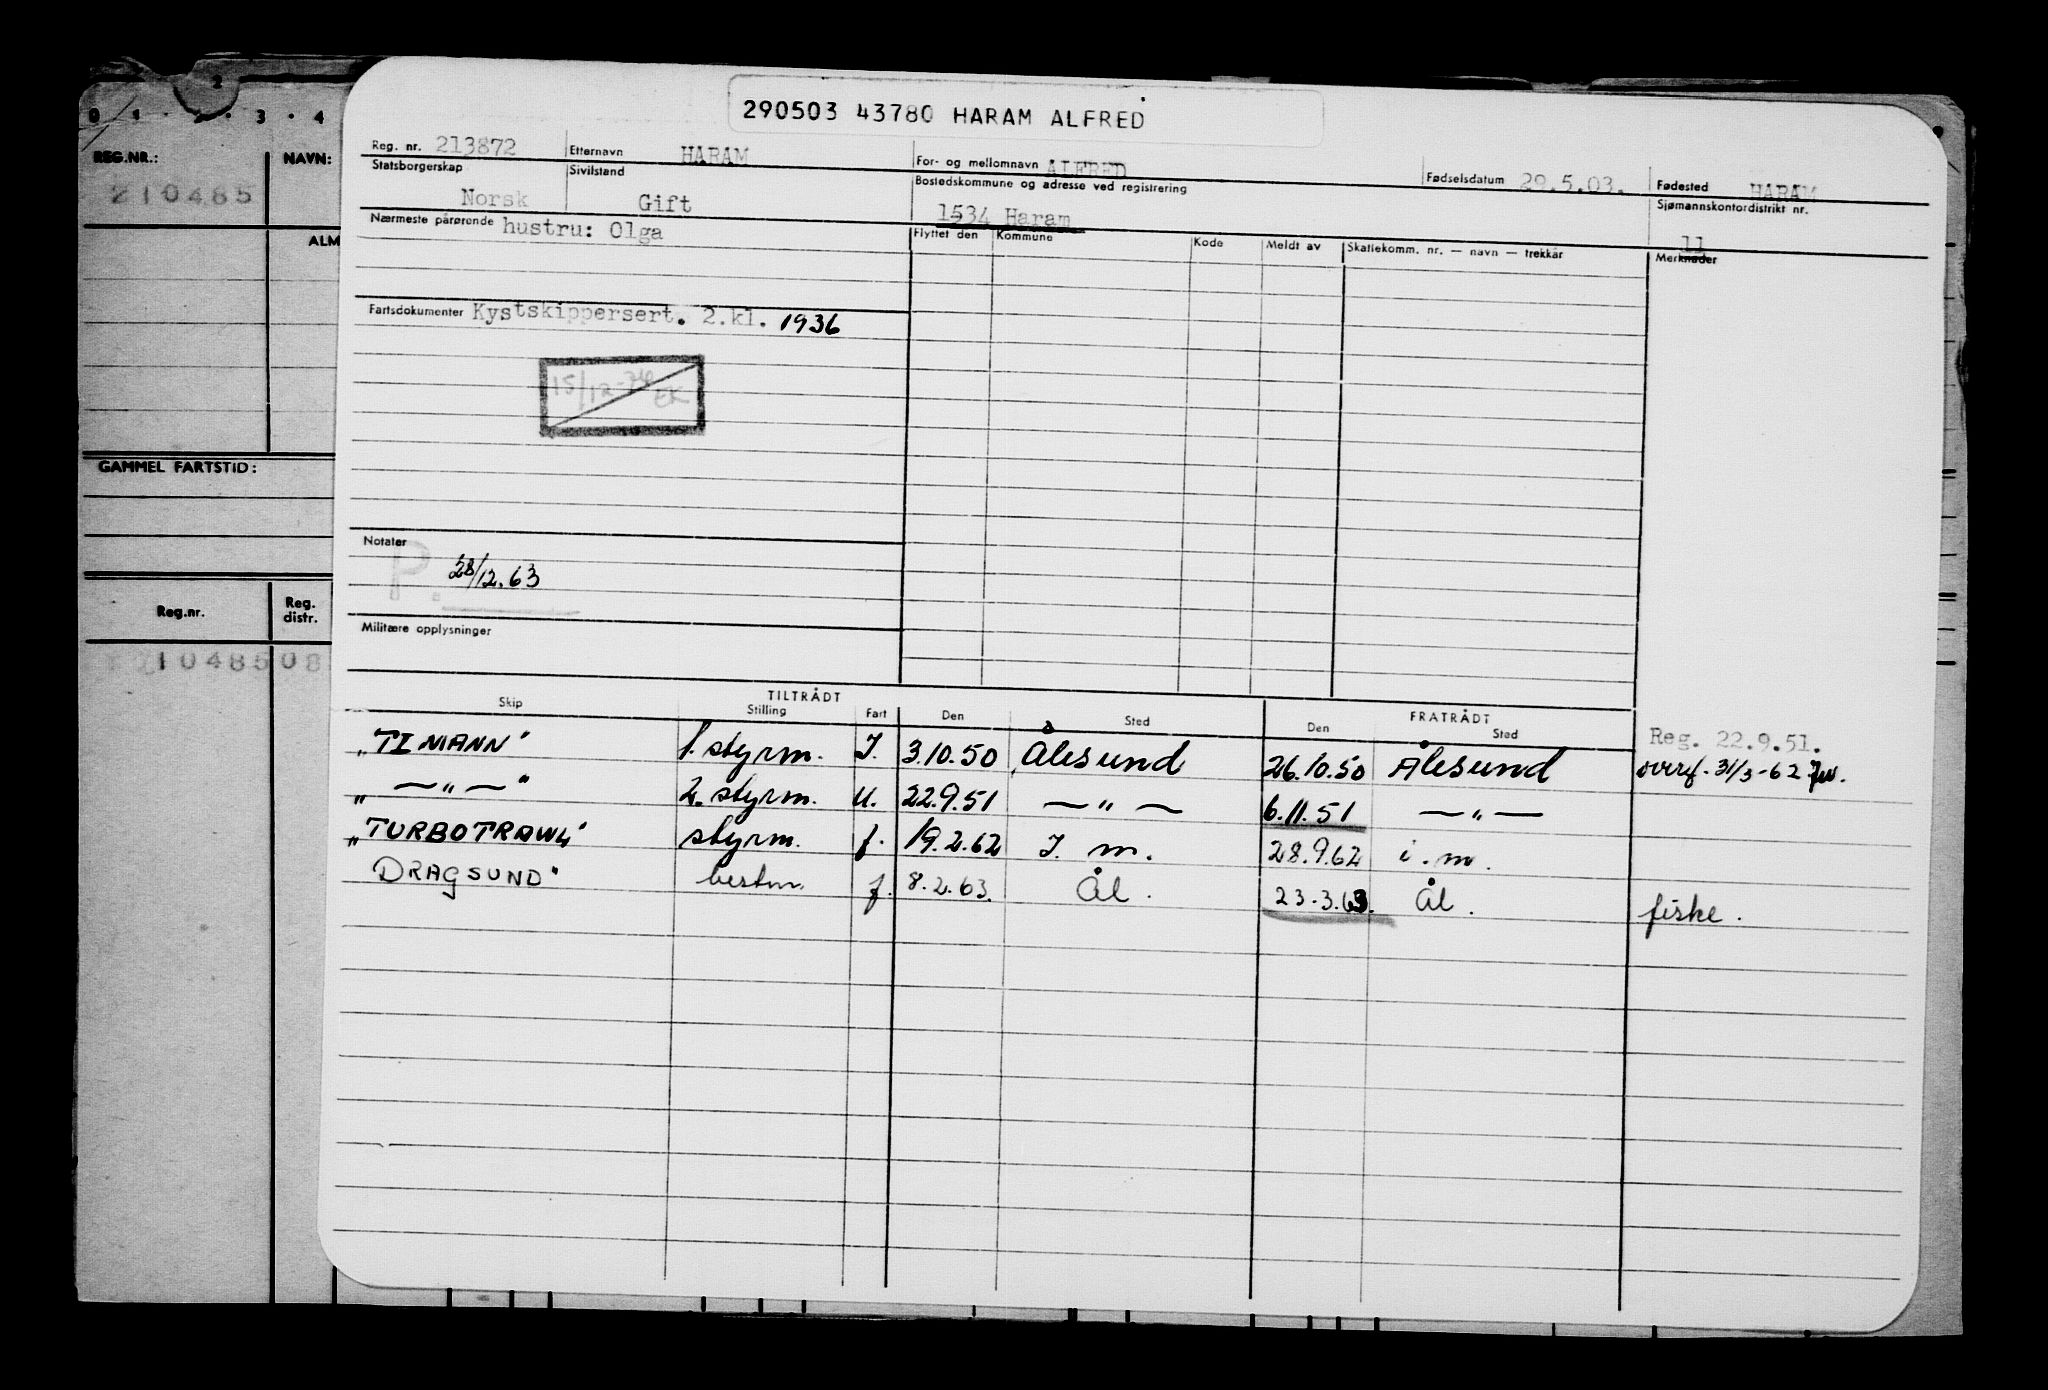 290503 43780 HARAM ALFRED
0 1 · 2 · 3 · 4
2
REG.NR.: NAVN:
210485
ALM
GAMMEL FARTSTID:
Reg.nr. Reg. distr.
210485 08
Reg. nr. 213872 Etternavn HARAM For- og mellomnavn ALFRED Fødselsdatum 29.5.03. Fødested HARAM
Statsborgerskap Norsk Sivilstand Gift Bostedskommune og adresse ved registrering 1534 Haram Sjømannskontordistrikt nr. 11
Nærmeste pårørende hustru: Olga Flyttet den Kommune Kode Meldt av Skattekomm. nr. — navn — trekkår Merknader
Fartsdokumenter Kystskippersert. 2.kl. 1936
15/12-74 EK
Notater
P. 28/12.63
Militære opplysninger
TILTRÅDT FRATRÅDT
Skip Stilling Fart Den Sted Den Sted
Reg. 22.9.51.
"TIMANN" 1. styrm. I. 3.10.50 Ålesund 26.10.50 Ålesund overf. 31/3-62
" — " — " 2. styrm. U. 22.9.51 — " — 6.11.51 — " —
"TURBOTRAWL" styrm. f. 19.2.62 I. m. 28.9.62 i. m.
DRAGSUND" bestm. f. 8.2.63. Ål. 23.3.63. Ål. fiske.